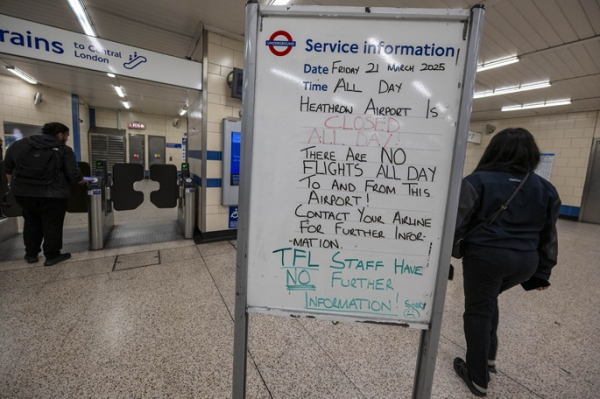 Trains to Central
London
Service information
Date FRIDAY 21 MARCH 2025
Time ALL DAY
HEATHROW AIRPORT IS
CLOSED
ALL DAY.
THERE ARE NO
FLIGHTS ALL DAY
TO AND FROM THIS
AIRPORT!
CONTACT YOUR AIRLINE
FOR FURTHER INFOR-
-MATION.
TFL STAFF HAVE
NO FURTHER
INFORMATION! SORRY